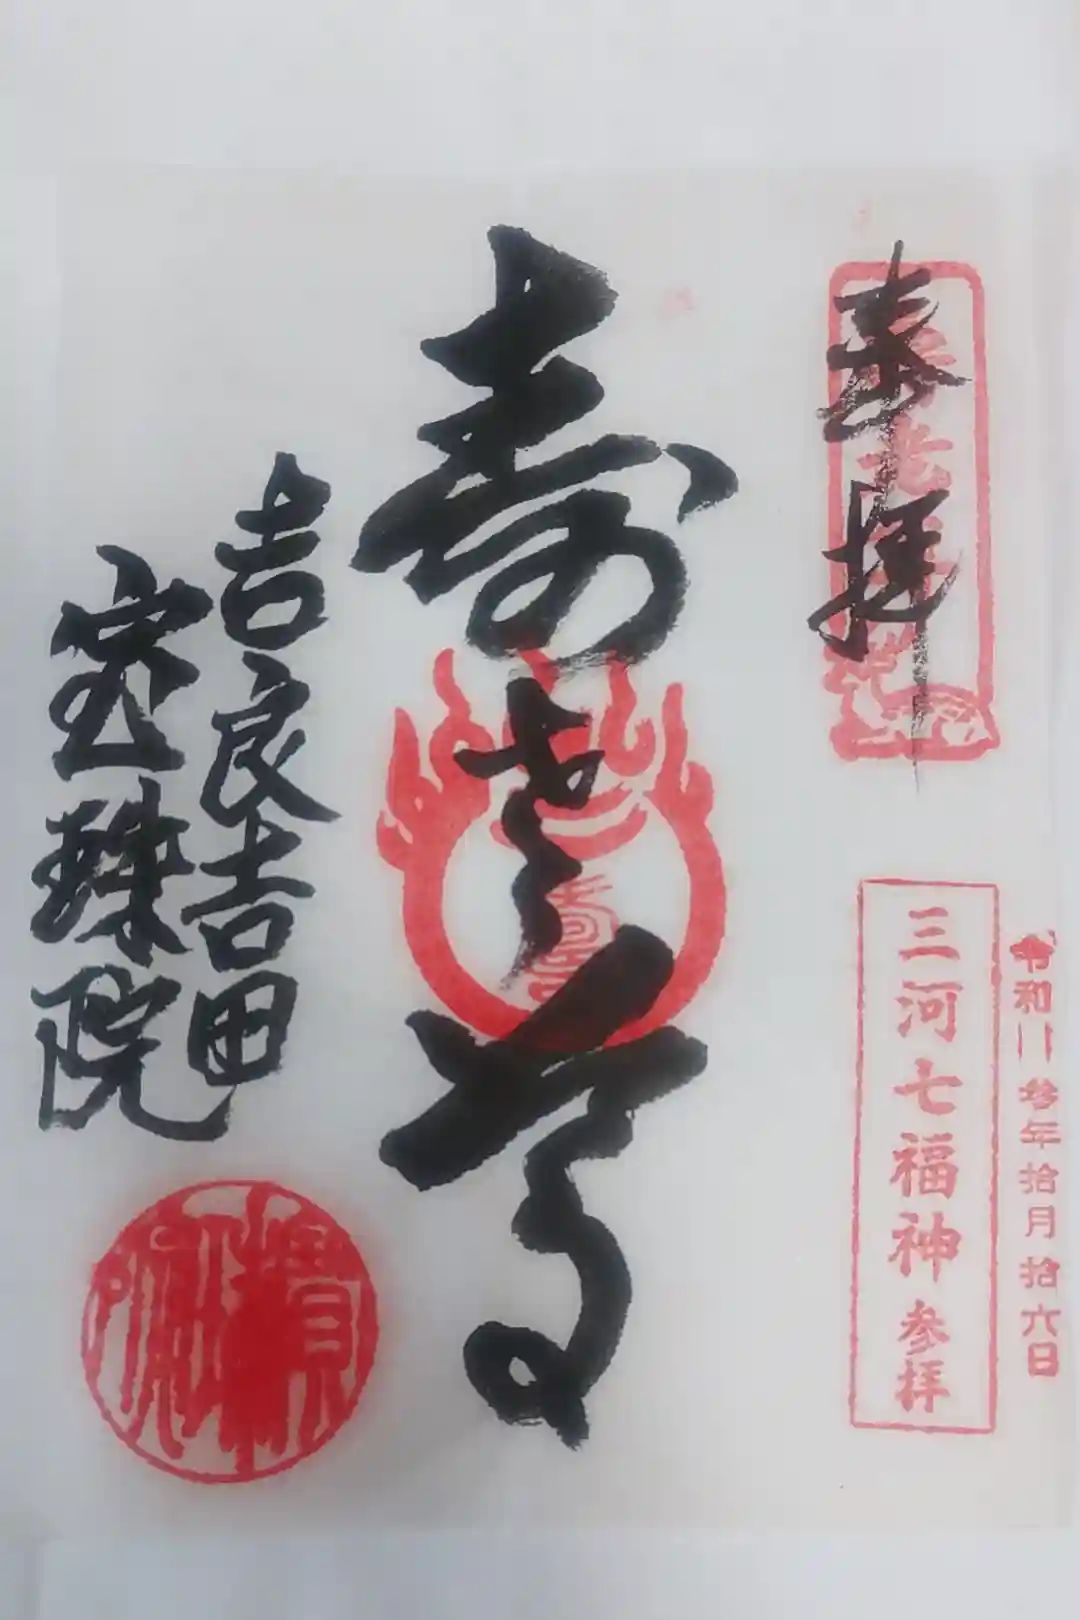 奉拝
三河七福神参拝
令和参年拾月拾六日
寿老尊
吉良吉田
宝珠院